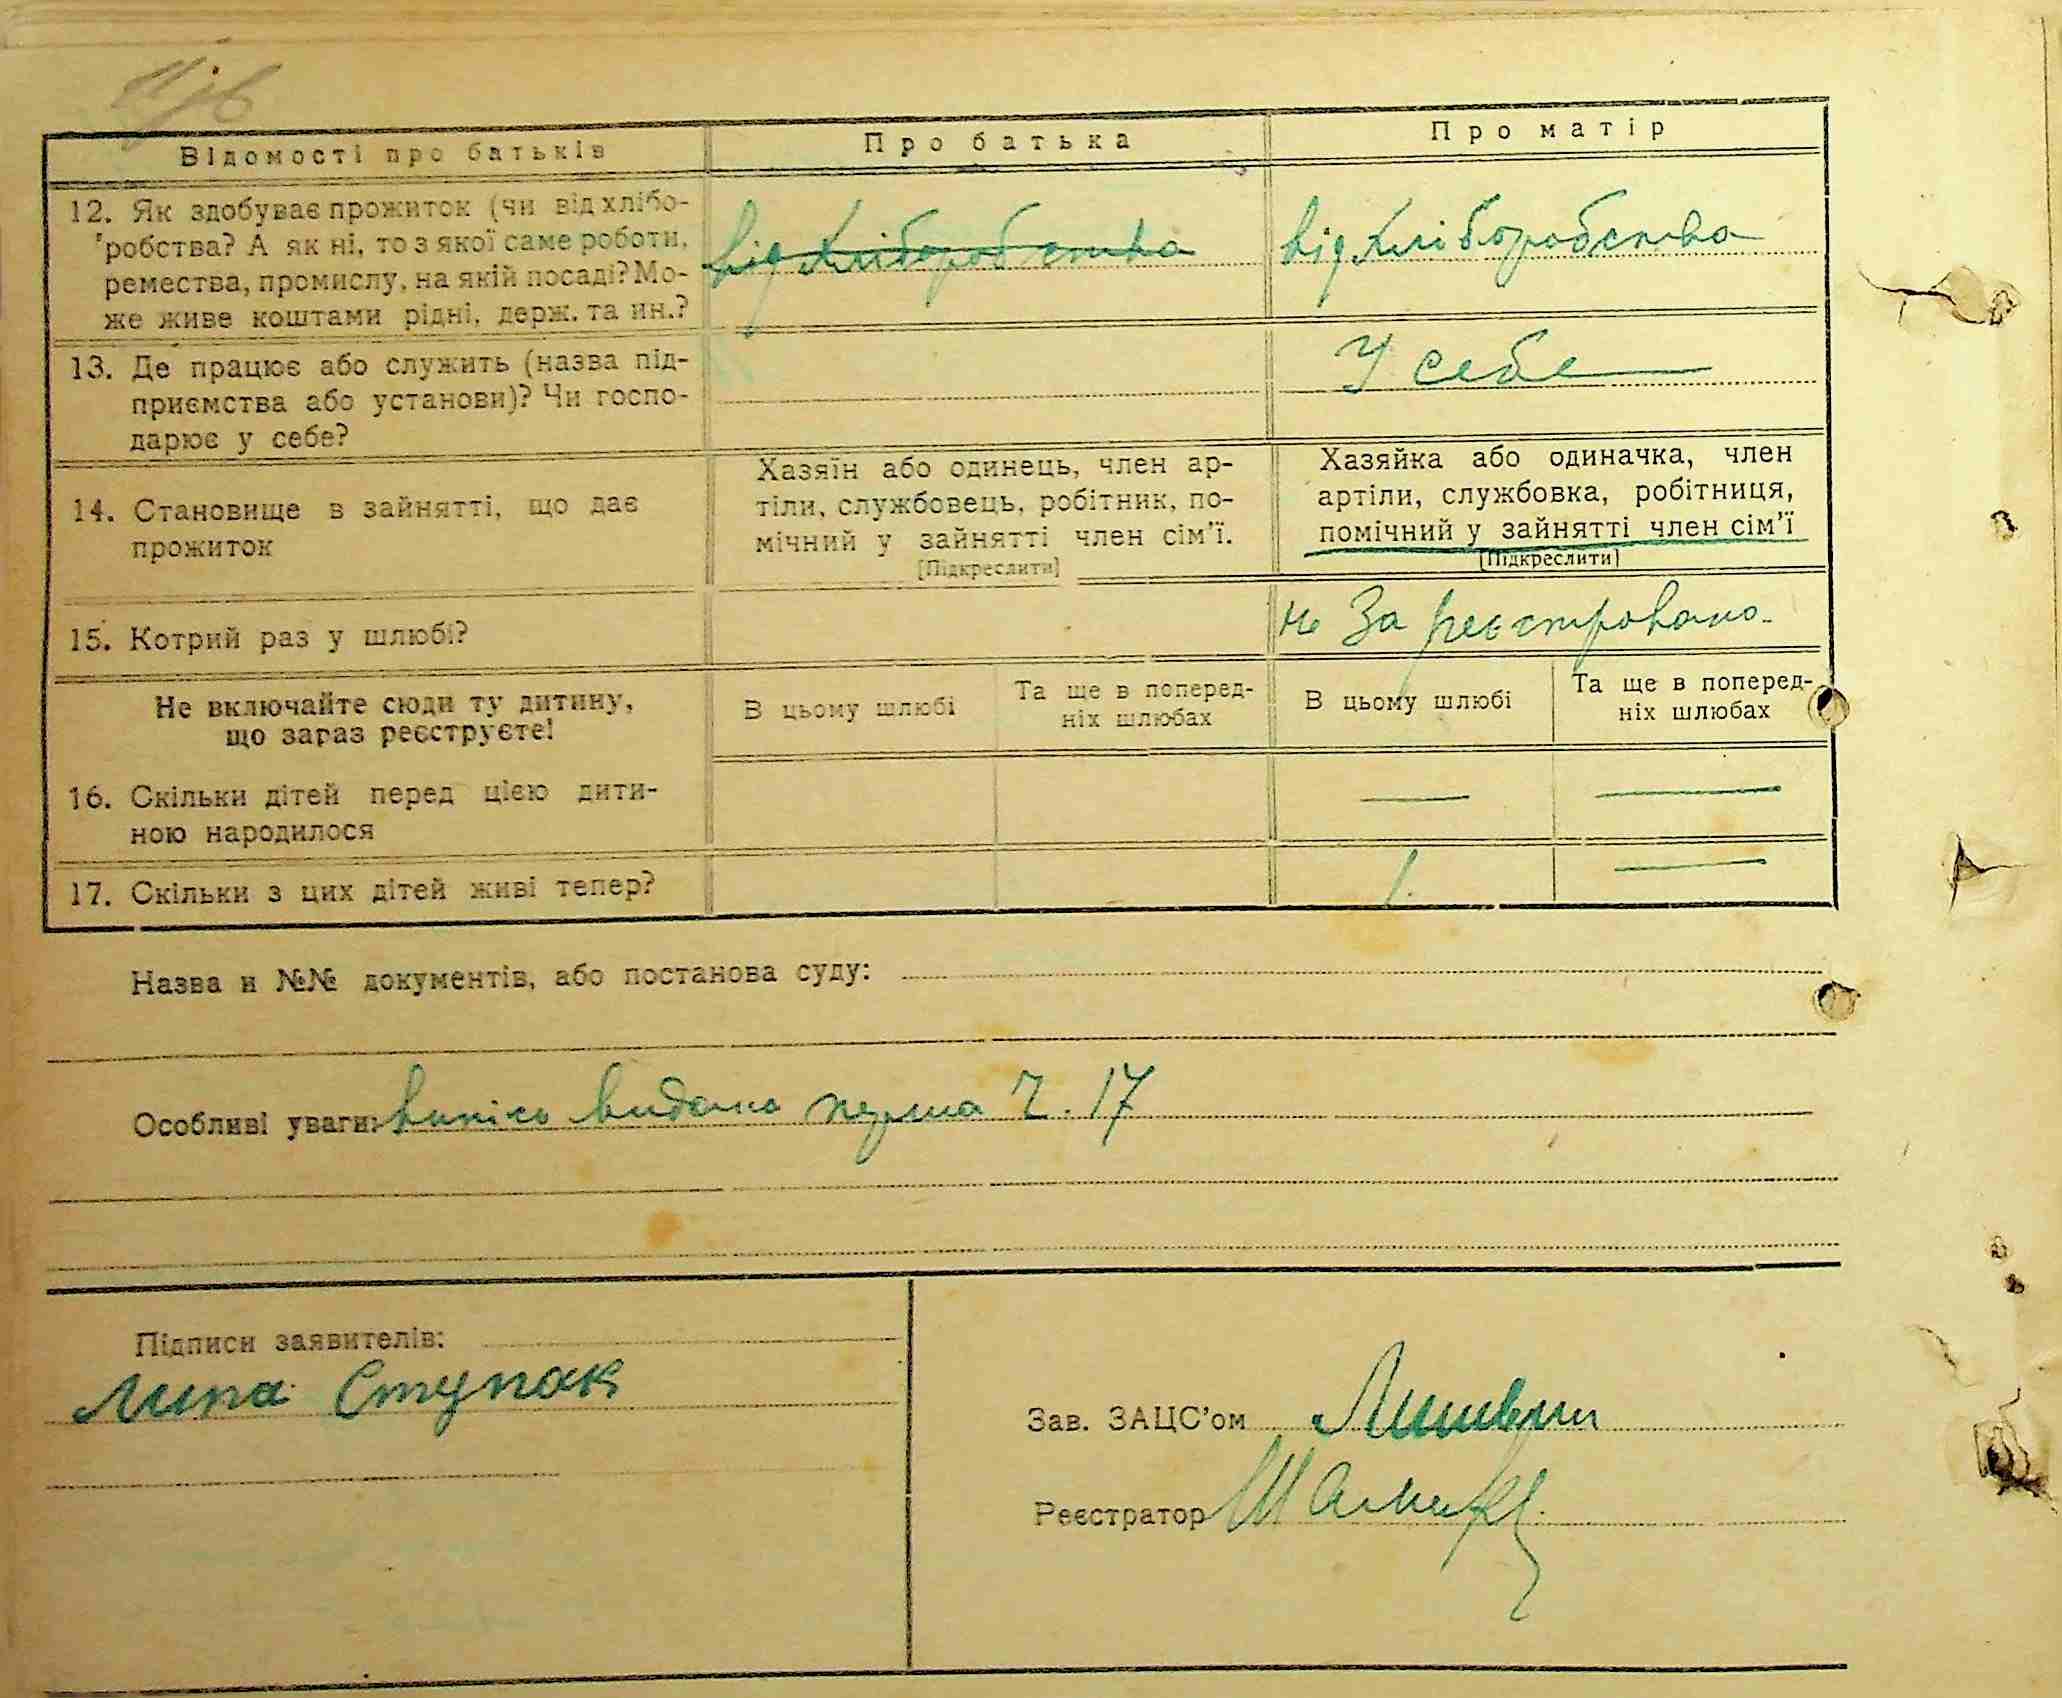 Відомості про батьків
Про батька
Про матір
12. Як здобуває прожиток (чи від хлібо-
робства? А як ні, то з якої саме роботи,
ремества, промислу, на якій посаді? Мо-
же живе коштами рідні, держ. та ин.?
від хліборобства
від хліборобства
13. Де працює або служить (назва під-
приємства або установи)? Чи госпо-
дарює у себе?
У себе
14. Становище в зайнятті, що дає
прожиток
Хазяїн або одинець, член ар-
тіли, службовець, робітник, по-
мічний у зайнятті член сім'ї.
[Підкреслити]
Хазяйка або одиначка, член
артіли, службовка, робітниця,
помічний у зайнятті член сім'ї
[Підкреслити]
15. Котрий раз у шлюбі?
не Зареєстровано
Не включайте сюди ту дитину,
що зараз реєструєте!
В цьому шлюбі
Та ще в поперед-
ніх шлюбах
В цьому шлюбі
Та ще в поперед-
ніх шлюбах
16. Скільки дітей перед цією дити-
ною народилося
— —
17. Скільки з цих дітей живі тепер?
1. —
Назва и №№ документів, або постанова суду:
Особливі уваги: випись видано перша Ч. 17
Підписи заявителів:
Липа Ступак
Зав. ЗАЦС'ом
Реєстратор